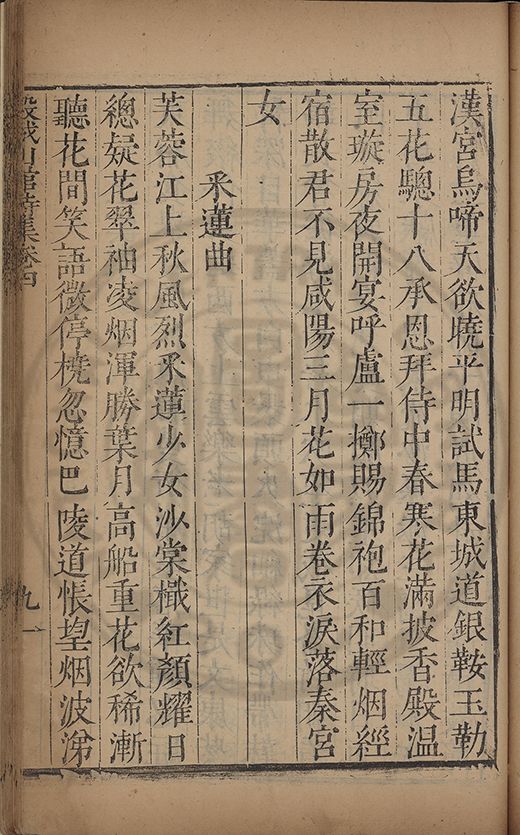 漢宮烏啼天欲曉平明試馬東城道銀鞍玉勒
五花驄十八承恩拜侍中春寒花滿披香殿温
室璇房夜開宴呼盧一擲賜錦袍百和輕烟經
宿散君不見咸陽三月花如雨卷衣淚落秦宮
女
采蓮曲
芙蓉江上秋風烈采蓮少女沙棠檝紅顏耀日
總疑花翠袖凌烟渾勝葉月高船重花欲稀漸
聽花間笑語微停橈忽憶巴陵道悵望烟波涕
縠城山館詩集卷四
九一